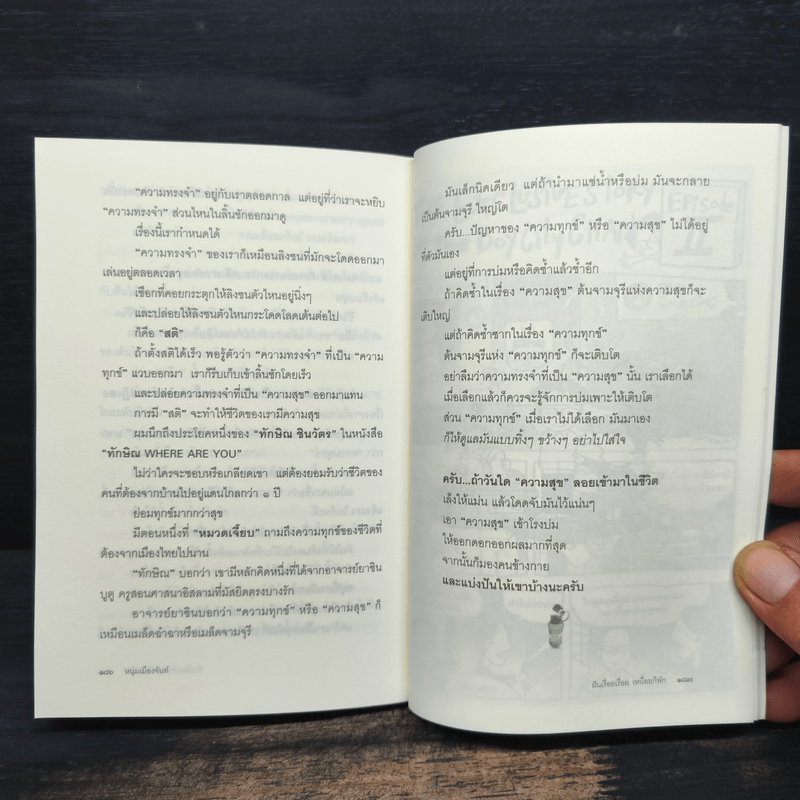 "ความทรงจำ" อยู่กับเราตลอดกาล แต่อยู่ที่ว่าเราจะหยิบ
"ความทรงจำ" ส่วนไหนในลิ้นชักออกมาดู
เรื่องนี้เรากำหนดได้
"ความทรงจำ" ของเราก็เหมือนลิงซนที่มักจะโดดออกมา
เล่นอยู่ตลอดเวลา
เชือกที่คอยกระตุกให้ลิงซนตัวไหนอยู่นิ่งๆ
และปล่อยให้ลิงซนตัวไหนกระโดดโลดเต้นต่อไป
ก็คือ "สติ"
ถ้าตั้งสติได้เร็ว พอรู้ตัวว่า "ความทรงจำ" ที่เป็น "ความ
ทุกข์" แวบออกมา เราก็รีบเก็บเข้าลิ้นชักโดยเร็ว
และปล่อยความทรงจำที่เป็น "ความสุข" ออกมาแทน
การมี "สติ" จะทำให้ชีวิตของเรามีความสุข
ผมนึกถึงประโยคหนึ่งของ "ทักษิณ ชินวัตร" ในหนังสือ
"ทักษิณ WHERE ARE YOU"
ไม่ว่าใครจะชอบหรือเกลียดเขา แต่ต้องยอมรับว่าชีวิตของ
คนที่ต้องจากบ้านไปอยู่แดนไกลกว่า ๑ ปี
ย่อมทุกข์มากกว่าสุข
มีตอนหนึ่งที่ "หมวดเจี๊ยบ" ถามถึงความทุกข์ของชีวิตที่
ต้องจากเมืองไทยไปนาน
"ทักษิณ" บอกว่า เขามีหลักคิดหนึ่งที่ได้จากอาจารย์ยาซิน
บูดู ครูสอนศาสนาอิสลามที่มัสยิดตรงบางรัก
อาจารย์ยาซินบอกว่า "ความทุกข์" หรือ "ความสุข" ก็
เหมือนเมล็ดฉำฉาหรือเมล็ดจามจุรี
๑๘๖ หนุ่มเมืองจันท์
มันเล็กนิดเดียว แต่ถ้านำมาแช่น้ำหรือบ่ม มันจะกลาย
เป็นต้นจามจุรี ใหญ่โต
ครับ...ปัญหาของ "ความทุกข์" หรือ "ความสุข" ไม่ได้อยู่
ที่ตัวมันเอง
แต่อยู่ที่การบ่มหรือคิดซ้ำแล้วซ้ำอีก
ถ้าคิดซ้ำในเรื่อง "ความสุข" ต้นจามจุรีแห่งความสุขก็จะ
เติบใหญ่
แต่ถ้าคิดซ้ำซากในเรื่อง "ความทุกข์"
ต้นจามจุรีแห่ง "ความทุกข์" ก็จะเติบโต
อย่าลืมว่าความทรงจำที่เป็น "ความสุข" นั้น เราเลือกได้
เมื่อเลือกแล้วก็ควรจะรู้จักการบ่มเพาะให้เติบโต
ส่วน "ความทุกข์" เมื่อเราไม่ได้เลือก มันมาเอง
ก็ให้ดูแลมันแบบทิ้งๆ ขว้างๆ อย่าไปใส่ใจ
ครับ...ถ้าวันใด "ความสุข" ลอยเข้ามาในชีวิต
เล็งให้แม่น แล้วโดดจับมันไว้แน่นๆ
เอา "ความสุข" เข้าโรงบ่ม
ให้ออกดอกออกผลมากที่สุด
จากนั้นก็มองคนข้างกาย
และแบ่งปันให้เขาบ้างนะครับ
ฝันเรื่อยเรื่อย เหนื่อยก็พัก ๑๘๗